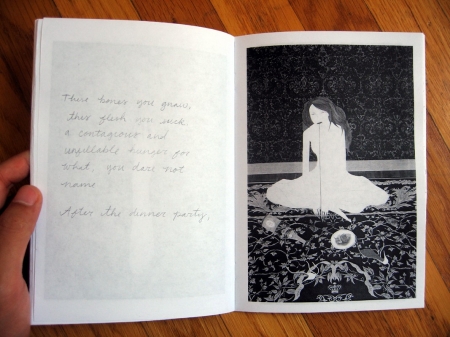 These bones you gnaw,
this flesh you suck
a contagious and
unfillable hunger for
what you dare not
name
After the dinner party,